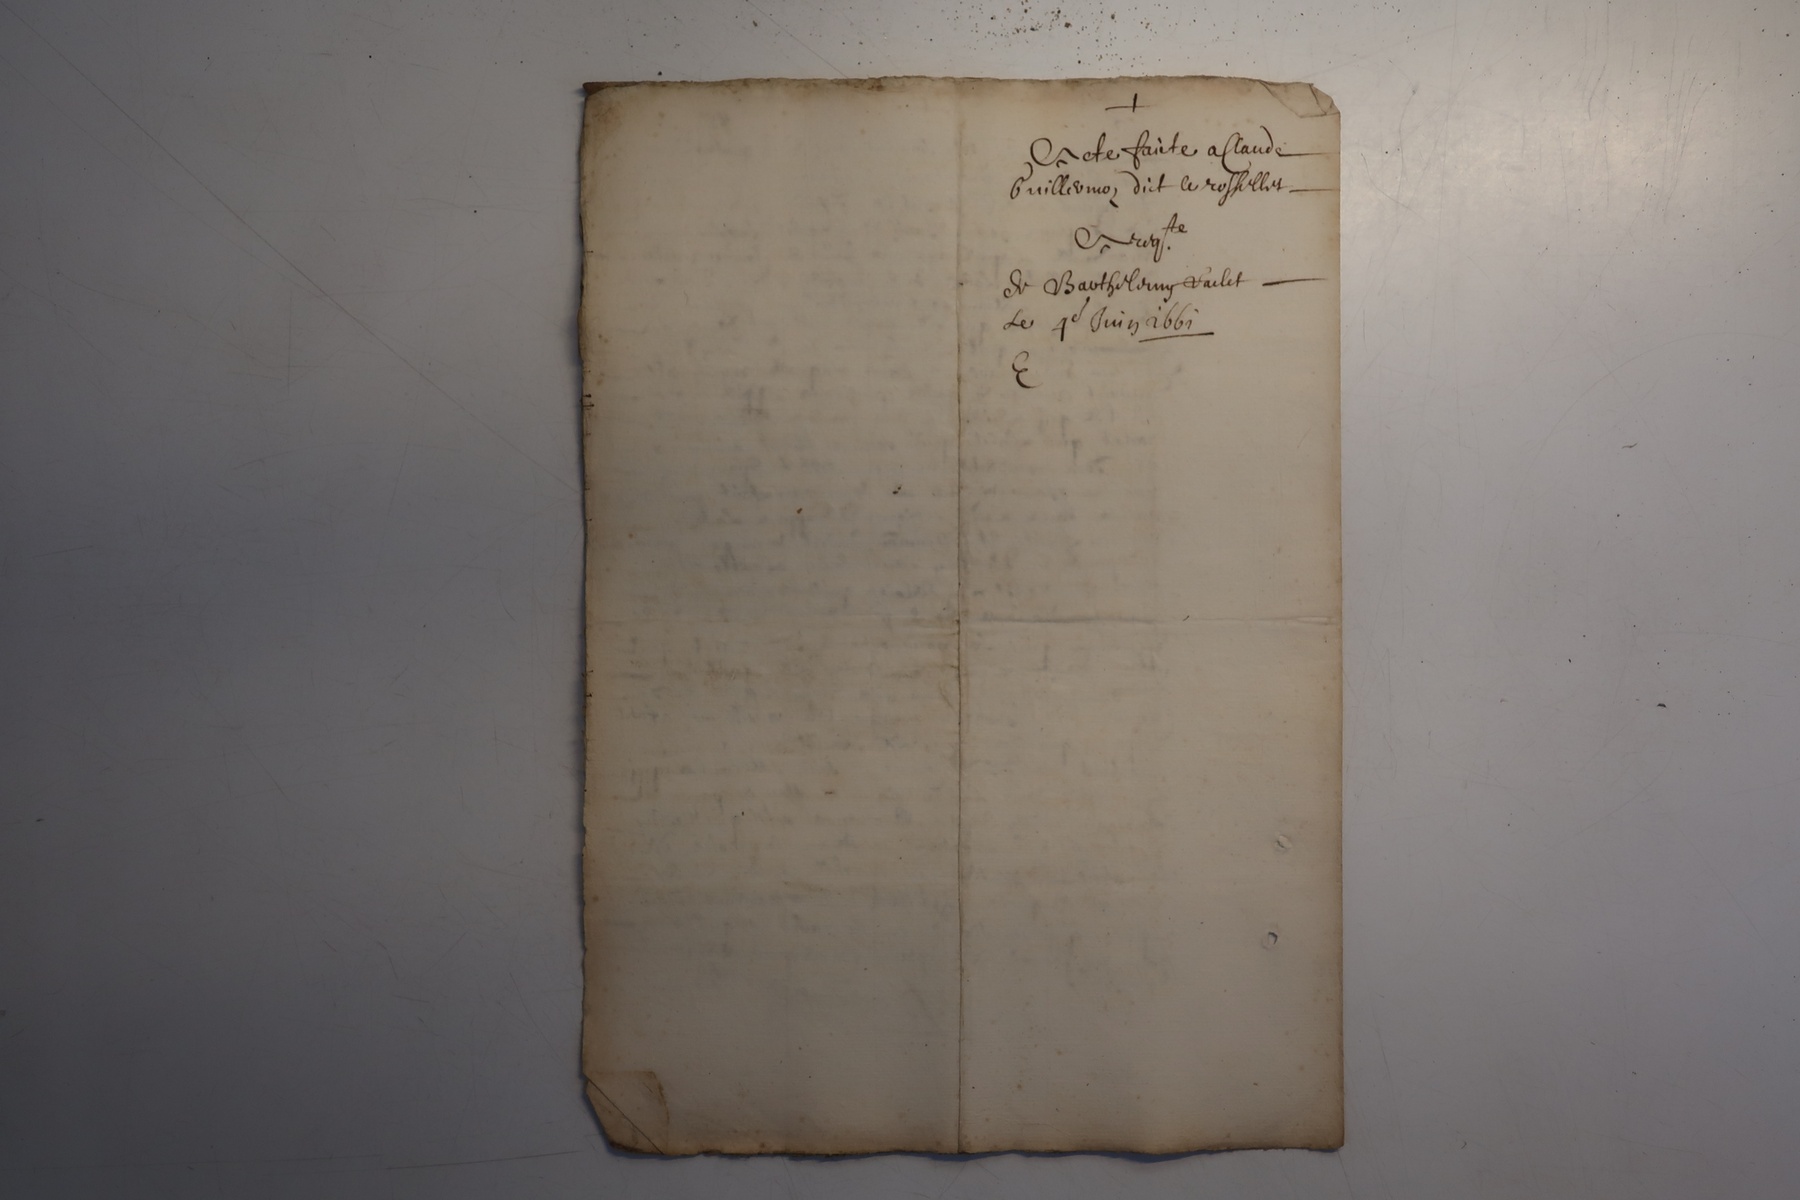 +
Acte faicte a Claude
Guillermoz dict le rossellet
A reqste
de Barthelemy Vaclet
Le 4e Juin 1661
E